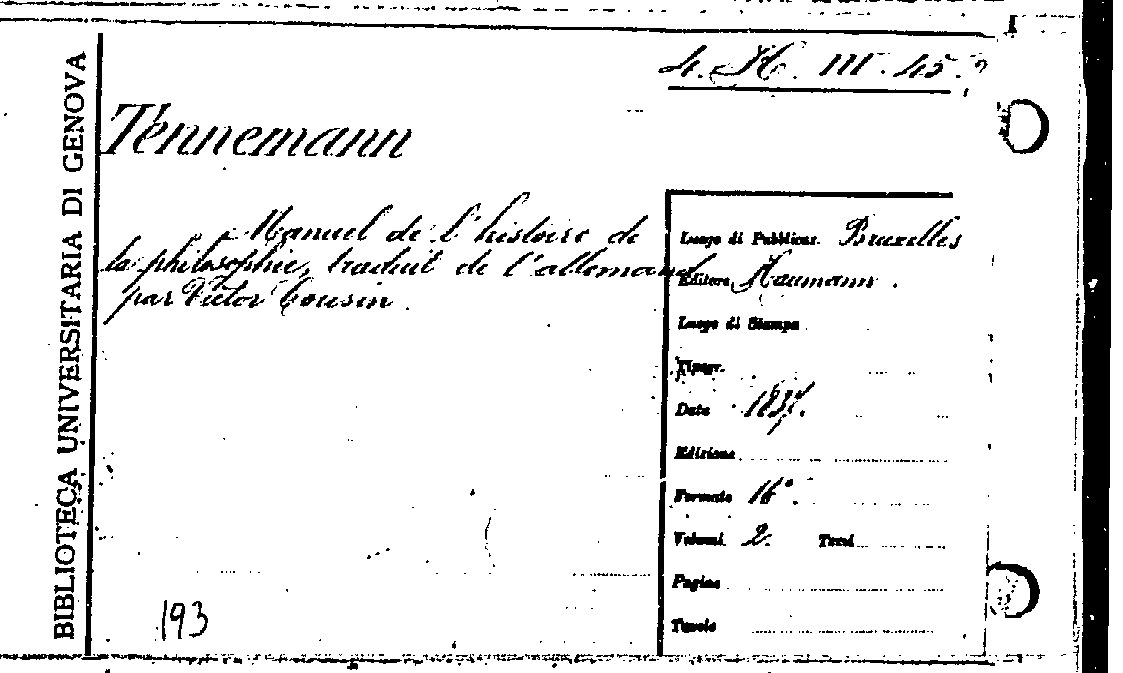 4. H. III. 45.
BIBLIOTECA UNIVERSITARIA DI GENOVA
Tennemann
Manuel de l'histoire de
la philosophie, traduit de l'allemand
par Victor Cousin.
Luogo di Pubblicaz. Bruxelles
Editore Haumann.
Luogo di Stampa
Tipogr.
Data 1837.
Edizione
Formato 16°.
Volumi 2. Tomi
Pagine
Tavole
193